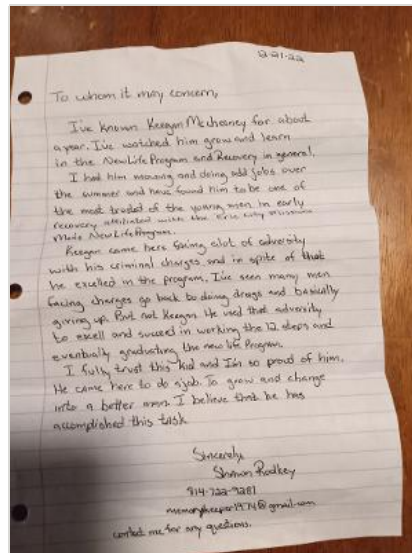 2-21-22
To whom it may concern,
I've known Keegan McChesney for about
a year. I've watched him grow and learn
in the New Life Program and Recovery in general.
I had him mowing and doing odd jobs over
the summer and have found him to be one of
the most trusted of the young men in early
recovery affiliated with the Erie City Missions
Mens New Life Program.
Keegan came here facing alot of adversity
with his criminal charges and in spite of that
he excelled in the program. I've seen many men
facing charges go back to doing drugs and basically
giving up. But not Keegan. He used that adversity
to excell and succeed in working the 12 steps and
eventually graduating the new life Program.
I fully trust this kid and I'm so proud of him.
He came here to do a job. To grow and change
into a better man. I believe that he has
accomplished this task
Sincerely,
Rodkey
814-722-9281
memorykeeper1974@gmail.com
contact me for any questions.